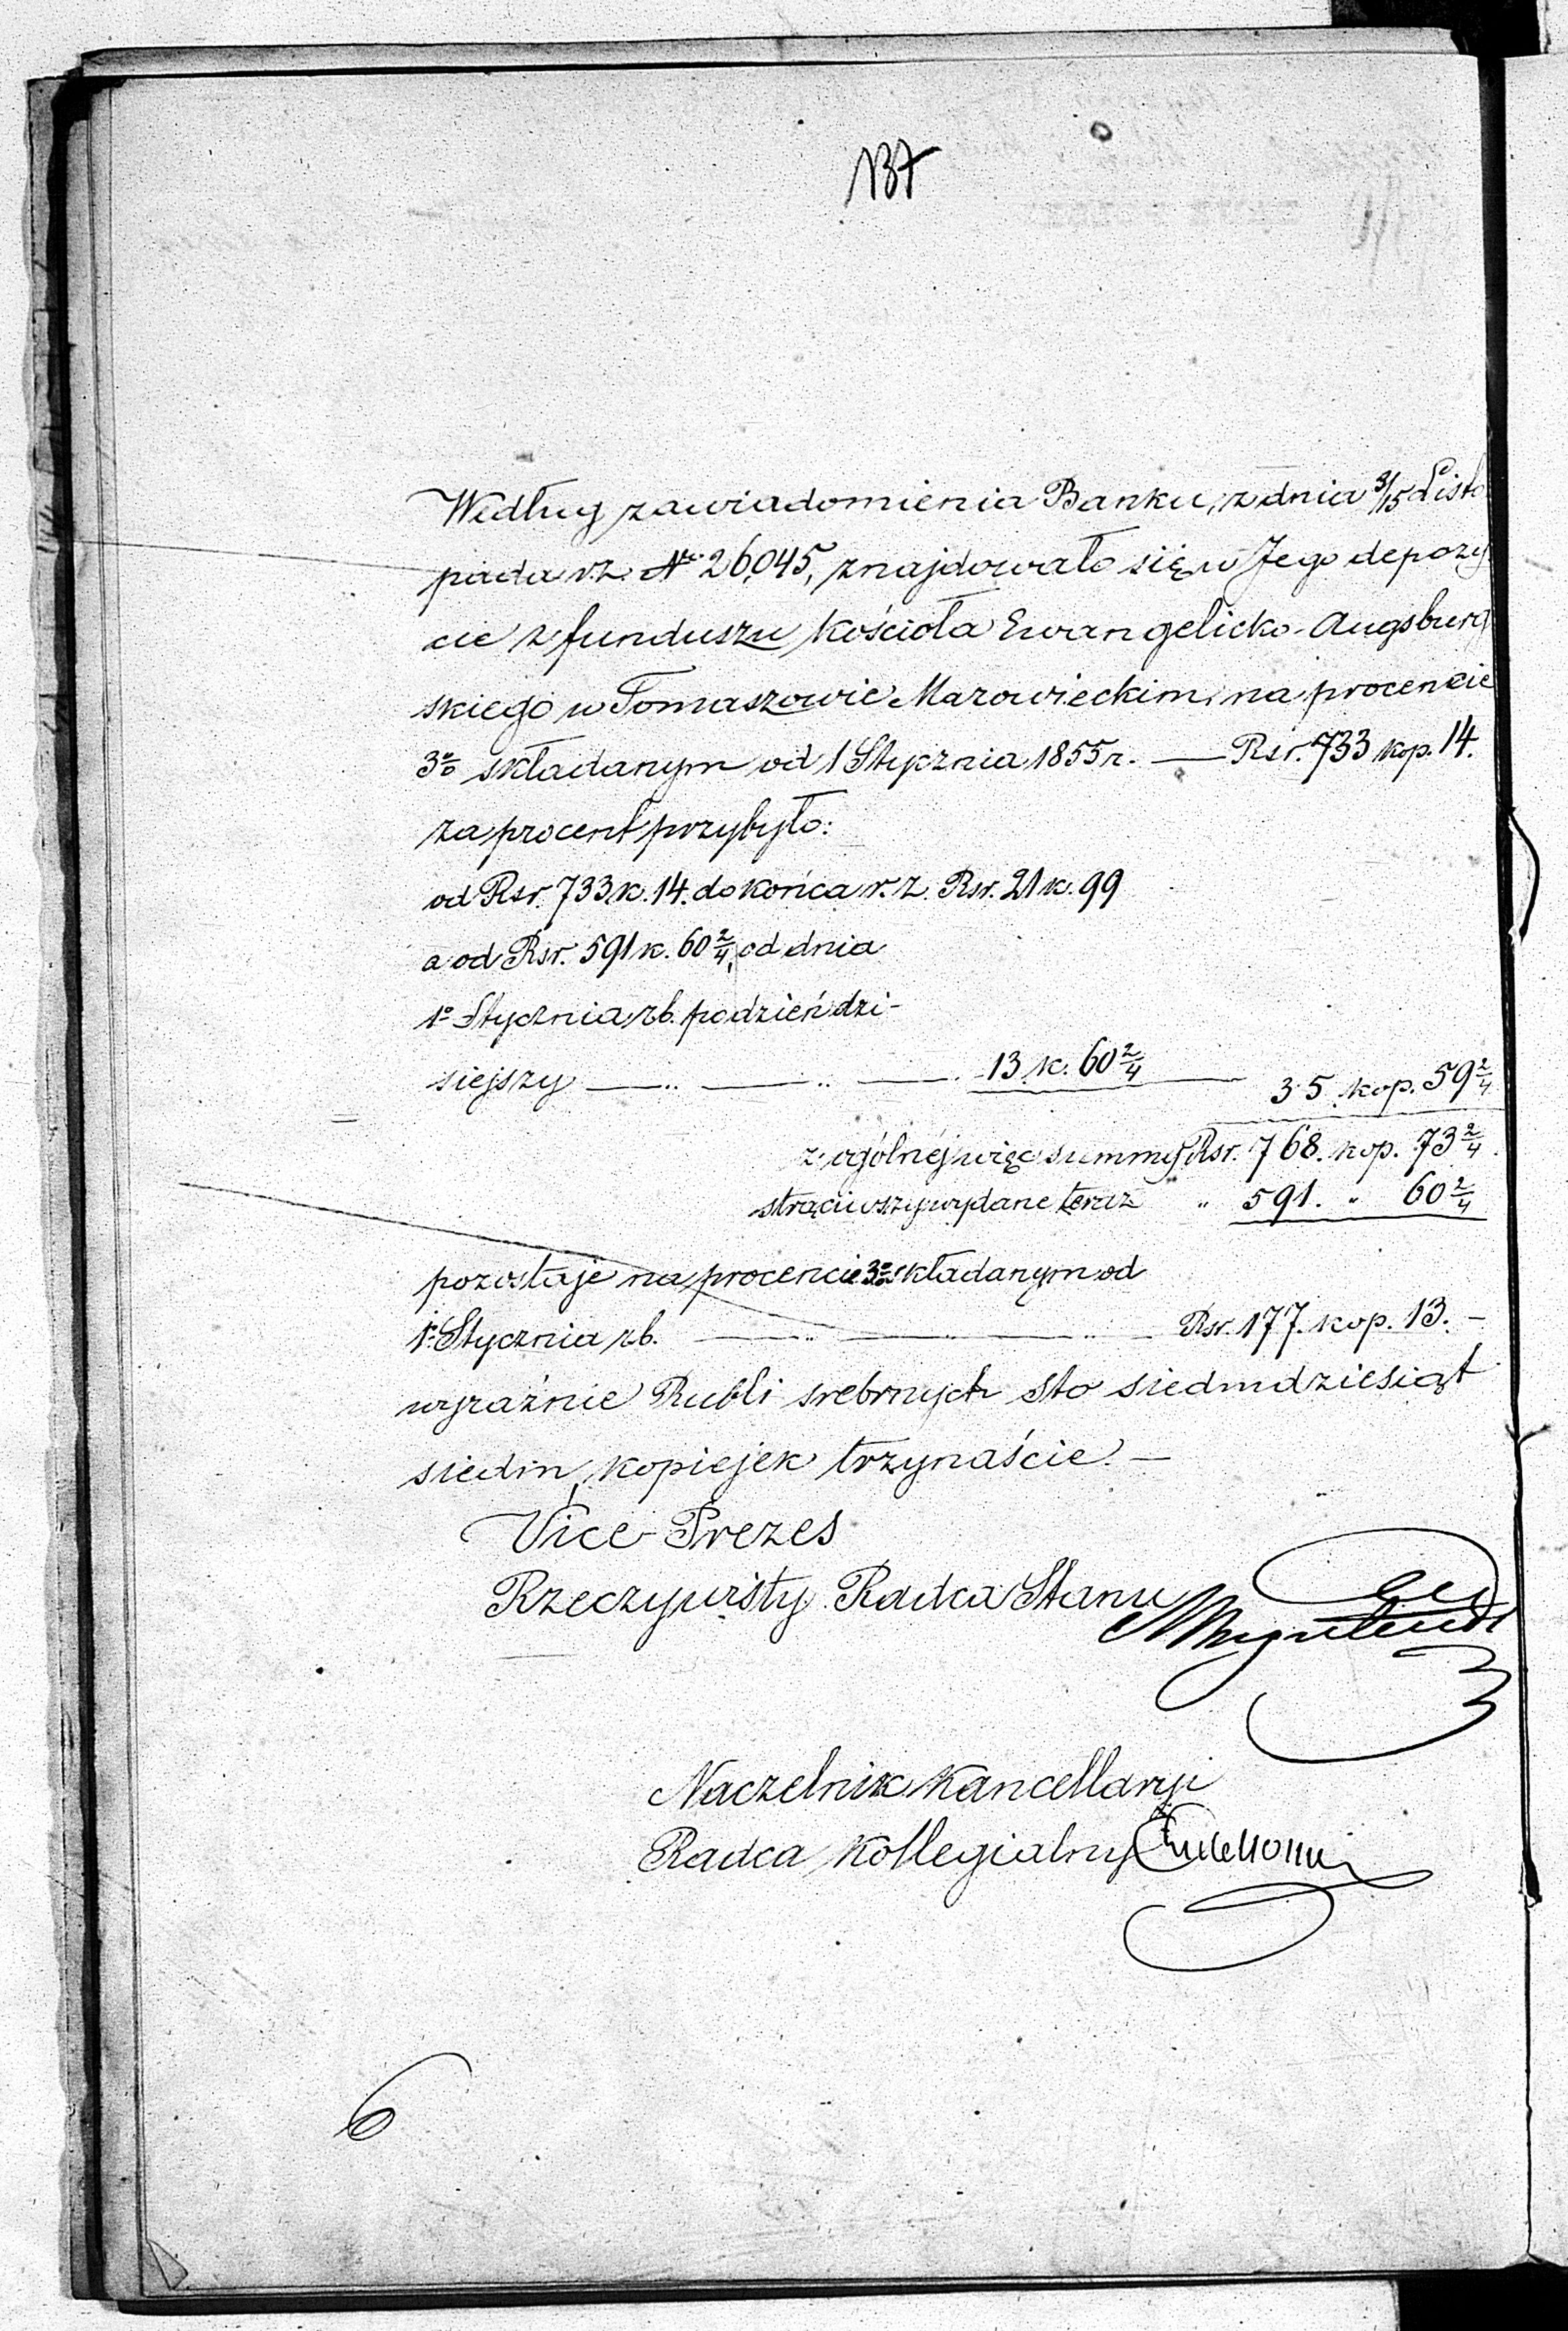 137
Według zawiadomienia Banku, z dnia 3/15 Listo
pada r.z. No 26,045, znajdowało się w Jego depozy
cie z funduszu Kościoła Ewangelicko-Augsburg
skiego w Tomaszowie Mazowieckim, na procencie
3% składanym od 1 Stycznia 1855 r. — Rsr. 733 kop. 14.
za procent przybyło:
od Rsr. 733 k. 14. do końca r. z. Rsr. 21 k. 99
a od Rsr. 591 k. 60 2/4, od dnia
1o Stycznia rb. po dzień dzi-
siejszy — „ — „ — 13 k. 60 2/4 — 35 kop. 59 2/4
z ogólnej więc summy Rsr. 768. kop. 73 2/4
strąciwszy wydane teraz „ 591. „ 60 2/4
pozostaje na procencie 3% składanym od
1o Stycznia rb. — „ — „ — „ — Rsr. 177. kop. 13. —
wyraźnie Rubli srebrnych sto siedmdziesiąt
siedm, kopiejek trzynaście. —
Vice-Prezes
Rzeczywisty Radca Stanu
Naczelnik Kancellaryi
Radca Kollegialny
6